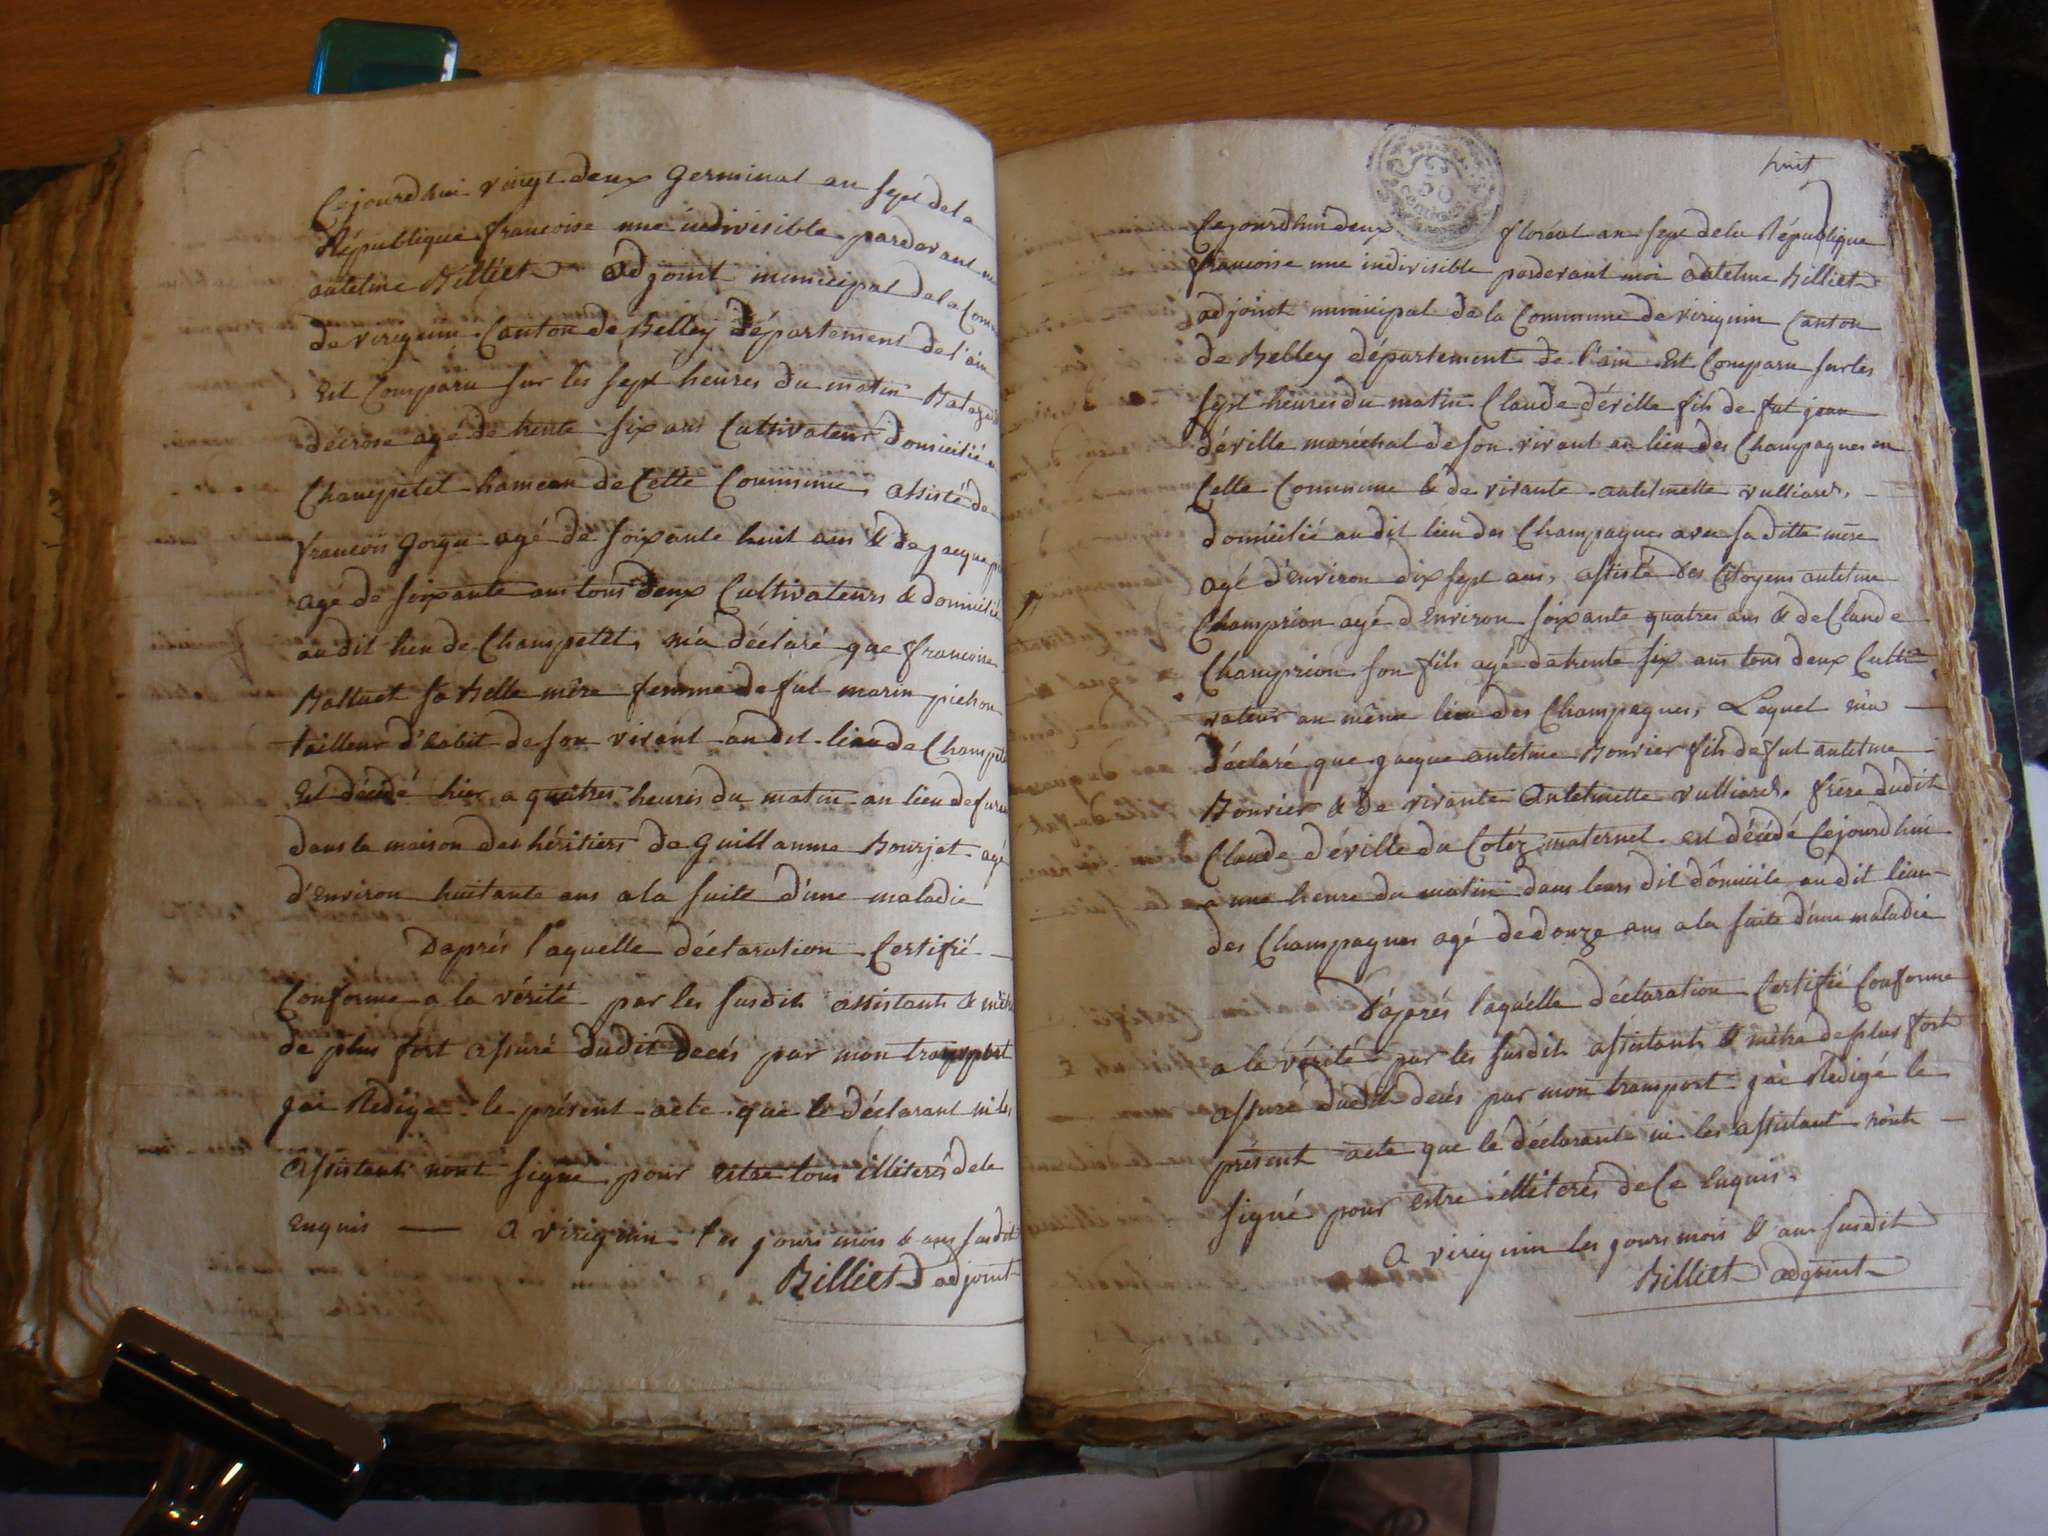 Cejourdhui vingt deux Germinal an sept de la
République francoise une indivisible pardevant
antelme Billiet adjoint municipal de la
de virignin Canton de Belley département de l'ain
Est Comparu sur les sept heures du matin
décrose agé de trente six ans Cultivateur domicilié
Champetel hameau de Cette Commune, assisté de
francois Gorgu agé de soixante huit ans & de jacque
agé de soixante ans tous deux Cultivateurs & domicilié
au dit lieu de Champetel, m'a déclaré que francoise
Balluet sa belle mère femme de fut marin pichon
tailleur d'habit de son vivant au dit lieu de
Est décédé hier a quatres heures du matin au lieu de
dans la maison des héritiers de Guillaume Bourjet agé
d'environ huitante ans a la suite d'une maladie
D'aprés l'aquelle déclaration Certifié
Conforme a la vérité par les susdit assistants &
de plus fort assuré dudit decés par mon transport
j'ai Redigé le présent acte que le déclarant ni les
assistants n'ont signé pour estre tous illiterés de le
Enquis — A virignin les jours mois & ans susdit
Billiet adjoint
huit
50
Cejourdhui deux floréal an sept de la République
francoise une indivisible pardevant moi antelme Billiet
adjoint municipal de la Commune de virignin Canton
de Belley département de l'ain Est Comparu sur les
sept heures du matin Claude déville fils de fut jean
déville maréchal de son vivant au lieu des Champagnes en
Cette Commune & de vivante antelmette vulliard,
domicilié au dit lieu des Champagnes avec sa ditte mère
agé d'environ dix sept ans, assisté des Citoyens antelme
Champrion agé d'Environ soixante quatres ans & de Claude
Champrion son fils agé de trente six ans tous deux Culti
vateur au même lieu des Champagnes, Lequel m'a
déclaré que jacque antelme Bouvier fils de fut antelme
Bouvier & de vivante Antelmette vulliard, frère dudit
Claude déville du Cotéz maternel est décédé Cejourdhui
a une heure du matin dans leurs dit domicile au dit lieu
des Champagnes agé de douze ans a la suite d'une maladie
D'aprés l'aquelle déclaration Certifié Conforme
a la vérité par les susdit assistants & m'etre de plus fort
assuré dudit decés par mon transport j'ai Redigé le
présent acte que le déclarante ni les assistant n'ont
signé pour estre illiterés de Ce Enquis.
A virignin les jours mois & ans susdit
Billiet adjoint